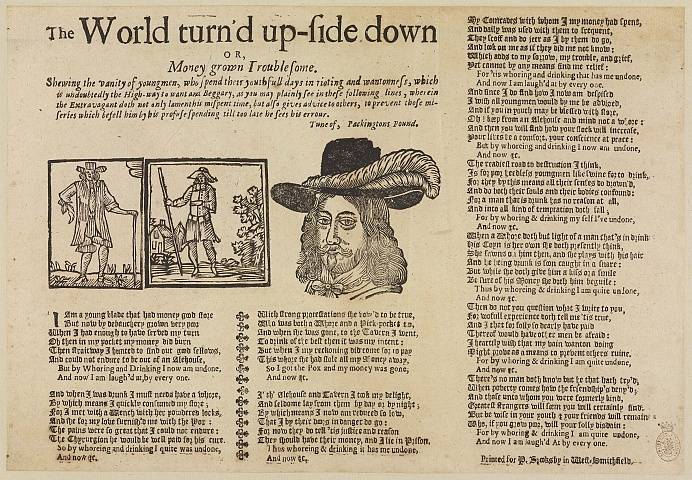 The World turn'd up-side down
OR,
Money grown Troublesome.
Shewing the vanity of youngmen, who spend their youthfull days in rioting and wantonness, which
is undoubtedly the High-way to want and Beggary, as you may plainly see in these following lines, wherein
the Extravagant doth not only lament his mispent time, but also gives advice to others, to prevent those mi-
series which befell him by his profuse spending till too late he sees his errour.
Tune of, Packingtons Pound.
I Am a young blade that had money good store
But now by debauchery grown very poor
When I had enough to have served my turn
Oh then in my pocket my money did burn
Then straitway I hunted to find out good fellows,
And could not endure to be out of an Alehouse,
But by Whoring and Drinking I now am undone,
And now I am laugh'd at, by every one.
And when I was drunk I must needs have a whore,
By which means I quickly consumed my store;
For I met with a Wench with her powdered locks,
And she for my love furnish'd me with the Pox:
The pains were so great that I could not endure:
The Chyrurgion he would be well paid for his cure.
So by whoreing and drinking I quite was undone,
And now &c.
With strong protestations she vow'd to be true,
Who was both a Whore and a Pick-pocket too,
And when she was gone, to the Tavern I went,
To drink of the best then it was my intent:
But when I my reckoning did come for to pay
This whore she had stole all my Money away,
So I got the Pox and my money was gone,
And now &c.
I'th' Alehouse and Tavern I took my delight,
And seldome lay from them by day or by night;
By which means I now am reduced so low,
That I by their doors in danger do go:
For now they do tell 'tis justice and reason
They should have their money, and I lie in Prison,
Thus whoreing & drinking it has me undone,
And now &c.
My Comrades with whom I my money had spent,
And daily was used with them to frequent,
They scoff and do jeer as I by them do go,
And look on me as if they did me not know:
Which adds to my sorrow, my trouble, and grief,
Yet cannot by any means find me relief:
For 'tis whoring and drinking that has me undone,
And now I am laugh'd at by every one.
And since I do find how I now am despised
I wish all youngmen would by me be advised,
And if you in youth may be blessed with store,
Oh! keep from an Alehouse and mind not a whore:
And then you will find how your stock will increase,
Your lives be a comfort, your conscience at peace:
But by whoreing and drinking I now am undone,
And now &c.
The readiest road to destruction I think,
Is for poor heedless youngmen like swine for to drink,
For they by this means all their senses do drown'd,
And do both their souls and their bodies confound:
For a man that is drunk has no reason at all,
And into all kind of temptation doth fall;
For by whoring & drinking my self I've undone,
And now &c.
When a Whore doth but light of a man that's in drink
His Coyn is her own she doth presently think,
She fawns on him then, and she plays with his hair
And he being drunk is soon caught in a snare:
But while she doth give him a kiss or a smile
Be sure of his Money she doth him beguile:
Thus by whoreing and drinking I am quite undone,
And now &c.
Then do not you question what I write to you,
For wofull experience doth tell me 'tis true,
And I that for folly so dearly have paid
Thereof would have other men be afraid:
I heartily wish that my vain wanton doing
Might prove as a means to prevent others ruine,
For by whoring & drinking I am quite undone,
And now &c.
There's no man doth know but he that hath try'd,
When poverty comes how the friendship's deny'd;
And those unto whom you were formerly kind,
Greatest strangers will seem you will certainly find:
But be wise in your youth & your friends will remain
Who, if you grow poor, will your folly disdain:
For by whoreing & drinking I am quite undone,
And now I am laugh'd At by every one.
Printed for P. Brooksby in West-Smithfield.